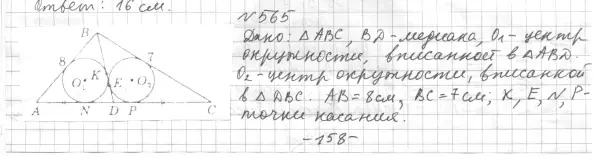 Ответ: 16 см.
№565
Дано: △ABC, BD-медиана, O₁-центр
окружности, вписанной в △ABD.
O₂-центр окружности, вписанной
в △DBC. AB=8см, BC=7см; K, E, N, P-
точки касания.
-158-
B
8
7
K
O
E
O₂
A
N
D
P
C